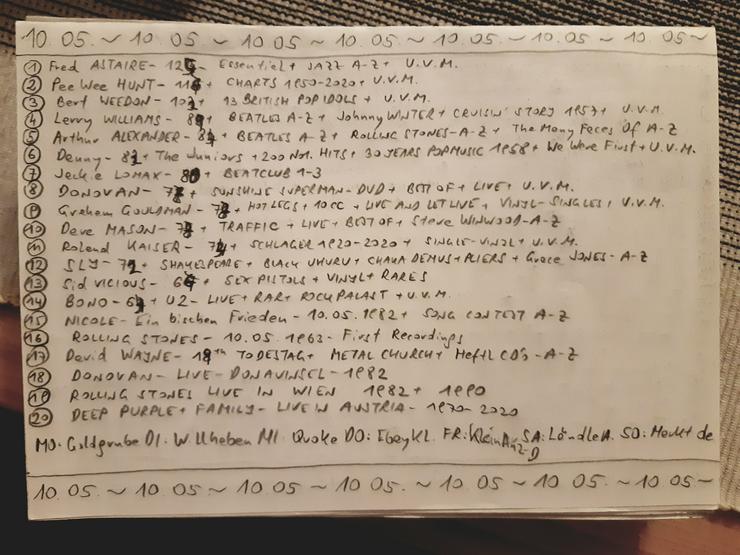 10.05. ~ 10.05 ~ 10.05 ~ 10.05 ~ 10.05. ~ 10.05. ~ 10.05 ~
① Fred ASTAIRE - Essential + JAZZ A-Z + U.V.M.
② Pee Wee HUNT - + CHARTS 1950-2020 + U.V.M.
③ Bert WEEDON - + 13 BRITISH POP IDOLS + U.V.M.
④ Lerry WILLIAMS - + BEATLES A-Z + Johnny WINTER + CRUISIN' STORY 1957 + U.V.M.
⑤ Arthur ALEXANDER - + BEATLES A-Z + ROLLING STONES-A-Z + The Many Feces Of A-Z
⑥ Denny - + The Juniors + 200 No1. HITS + 30 YEARS POPMUSIC 1958 + We Were First + U.V.M.
⑦ Jeckie LOMAX - + BEATCLUB 1-3
⑧ DONOVAN - + SUNSHINE SUPERMAN - DVD + BEST OF + LIVE + U.V.M.
⑨ Greham GOULDMAN - + HOTLEGS + 10CC + LIVE AND LET LIVE + VINYL-SINGLES + U.V.M.
⑩ Deve MASON - + TRAFFIC + LIVE + BEST OF + Steve WINWOOD-A-Z
⑪ Rolend KAISER - + SCHLAGER 1920-2020 + SINGLE-VINYL + U.V.M.
⑫ SLY - + SHAKESPEARE + BLACK UHURU + CHAKA DEMUS + PLIERS + Grace JONES - A-Z
⑬ Sid VICIOUS - + SEX PISTOLS + VINYL + RARES
⑭ BONO - + U2 - LIVE + RAR + ROCKPALAST + U.V.M.
⑮ NICOLE - Ein bischen Frieden - 10.05.1982 + SONG CONTEST A-Z
⑯ ROLLING STONES - 10.05.1963 - First Recordings
⑰ David WAYNE - TODESTAG + METAL CHURCH + CD'S - A-Z
⑱ DONOVAN - LIVE - DONAUINSEL - 1982
⑲ ROLLING STONES LIVE IN WIEN 1982 + 1990
⑳ DEEP PURPLE + FAMILY - LIVE IN AUSTRIA - 1970-2020
MO: Goldgrube DI: W.Uheben MI: Quoke DO: Ebeykl. FR: KleinAnz-D SA: LändleA. SO: Merkt de
10.05. ~ 10.05 ~ 10.05 ~ 10.05 ~ 10.05 ~ 10.05. ~ 10.05 ~